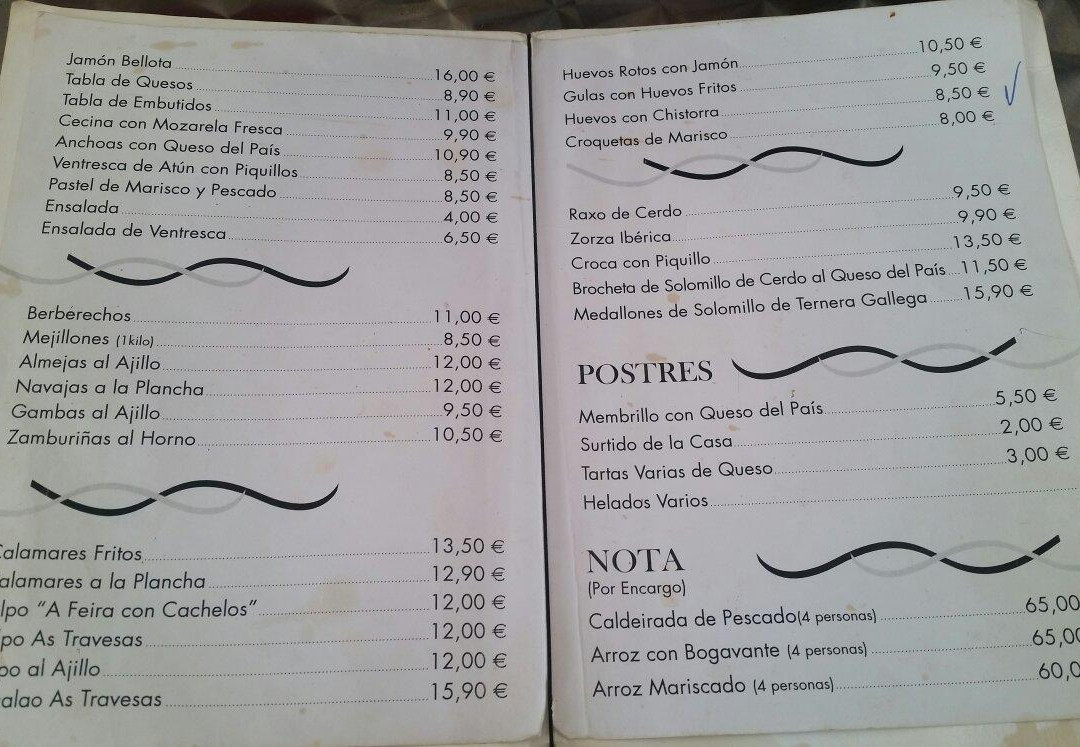 Jamón Bellota 16,00 €
Tabla de Quesos 8,90 €
Tabla de Embutidos 11,00 €
Cecina con Mozarela Fresca 9,90 €
Anchoas con Queso del País 10,90 €
Ventresca de Atún con Piquillos 8,50 €
Pastel de Marisco y Pescado 8,50 €
Ensalada 4,00 €
Ensalada de Ventresca 6,50 €
Berberechos 11,00 €
Mejillones (1kilo) 8,50 €
Almejas al Ajillo 12,00 €
Navajas a la Plancha 12,00 €
Gambas al Ajillo 9,50 €
Zamburiñas al Horno 10,50 €
Calamares Fritos 13,50 €
alamares a la Plancha 12,90 €
lpo “A Feira con Cachelos” 12,00 €
po As Travesas 12,00 €
po al Ajillo 12,00 €
alao As Travesas 15,90 €
Huevos Rotos con Jamón 10,50 €
Gulas con Huevos Fritos 9,50 €
Huevos con Chistorra 8,50 €
Croquetas de Marisco 8,00 €
Raxo de Cerdo 9,50 €
Zorza Ibérica 9,90 €
Croca con Piquillo 13,50 €
Brocheta de Solomillo de Cerdo al Queso del País 11,50 €
Medallones de Solomillo de Ternera Gallega 15,90 €
POSTRES
Membrillo con Queso del País 5,50 €
Surtido de la Casa 2,00 €
Tartas Varias de Queso 3,00 €
Helados Varios
NOTA
(Por Encargo)
Caldeirada de Pescado(4 personas) 65,00
Arroz con Bogavante (4 personas) 65,00
Arroz Mariscado (4 personas) 60,0